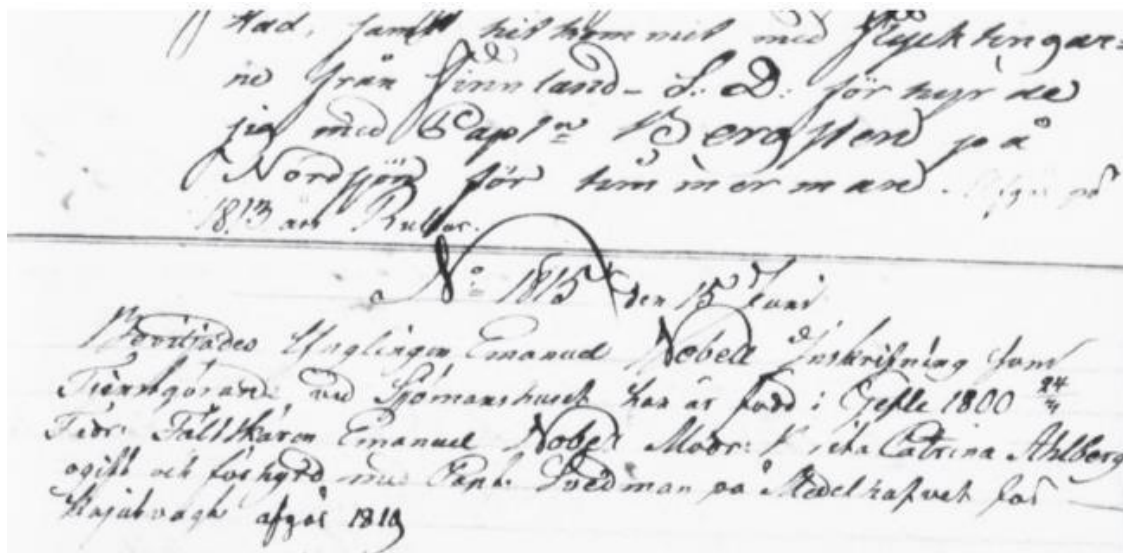 stad, samt hitkommit med Flyktingar=
ne från Finnland – S: D: förhyrde
sig med Capt:n Bergsten på
Nordsjön för timmerman. på
1813 års Rullor.
No 1815 den 15 Juni
Beviljades Ynglingen Emanuel Nobell Inskrifning som
Tienstgörande vid Sjömanshuset han är född i Gefle 1800 24/3
Fadr: Fältskären Emanuel Nobell Modr: Catrina Ahlberg
ogift och förhyrd med Capt: Svedman på Medelhafvet för
Kajutvagt afgår 1819